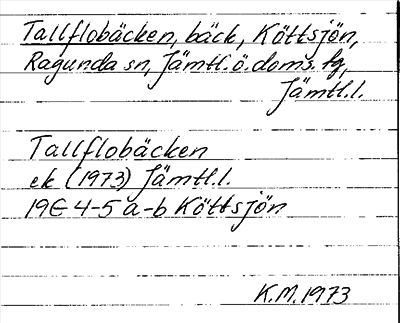 Tallflobäcken, bäck, Köttsjön,
Ragunda sn, Jämtl. ö. doms. tg,
Jämtl.l.
Tallflobäcken
ek (1973) Jämtl.l.
19E 4-5 a-b Köttsjön
K.M. 1973